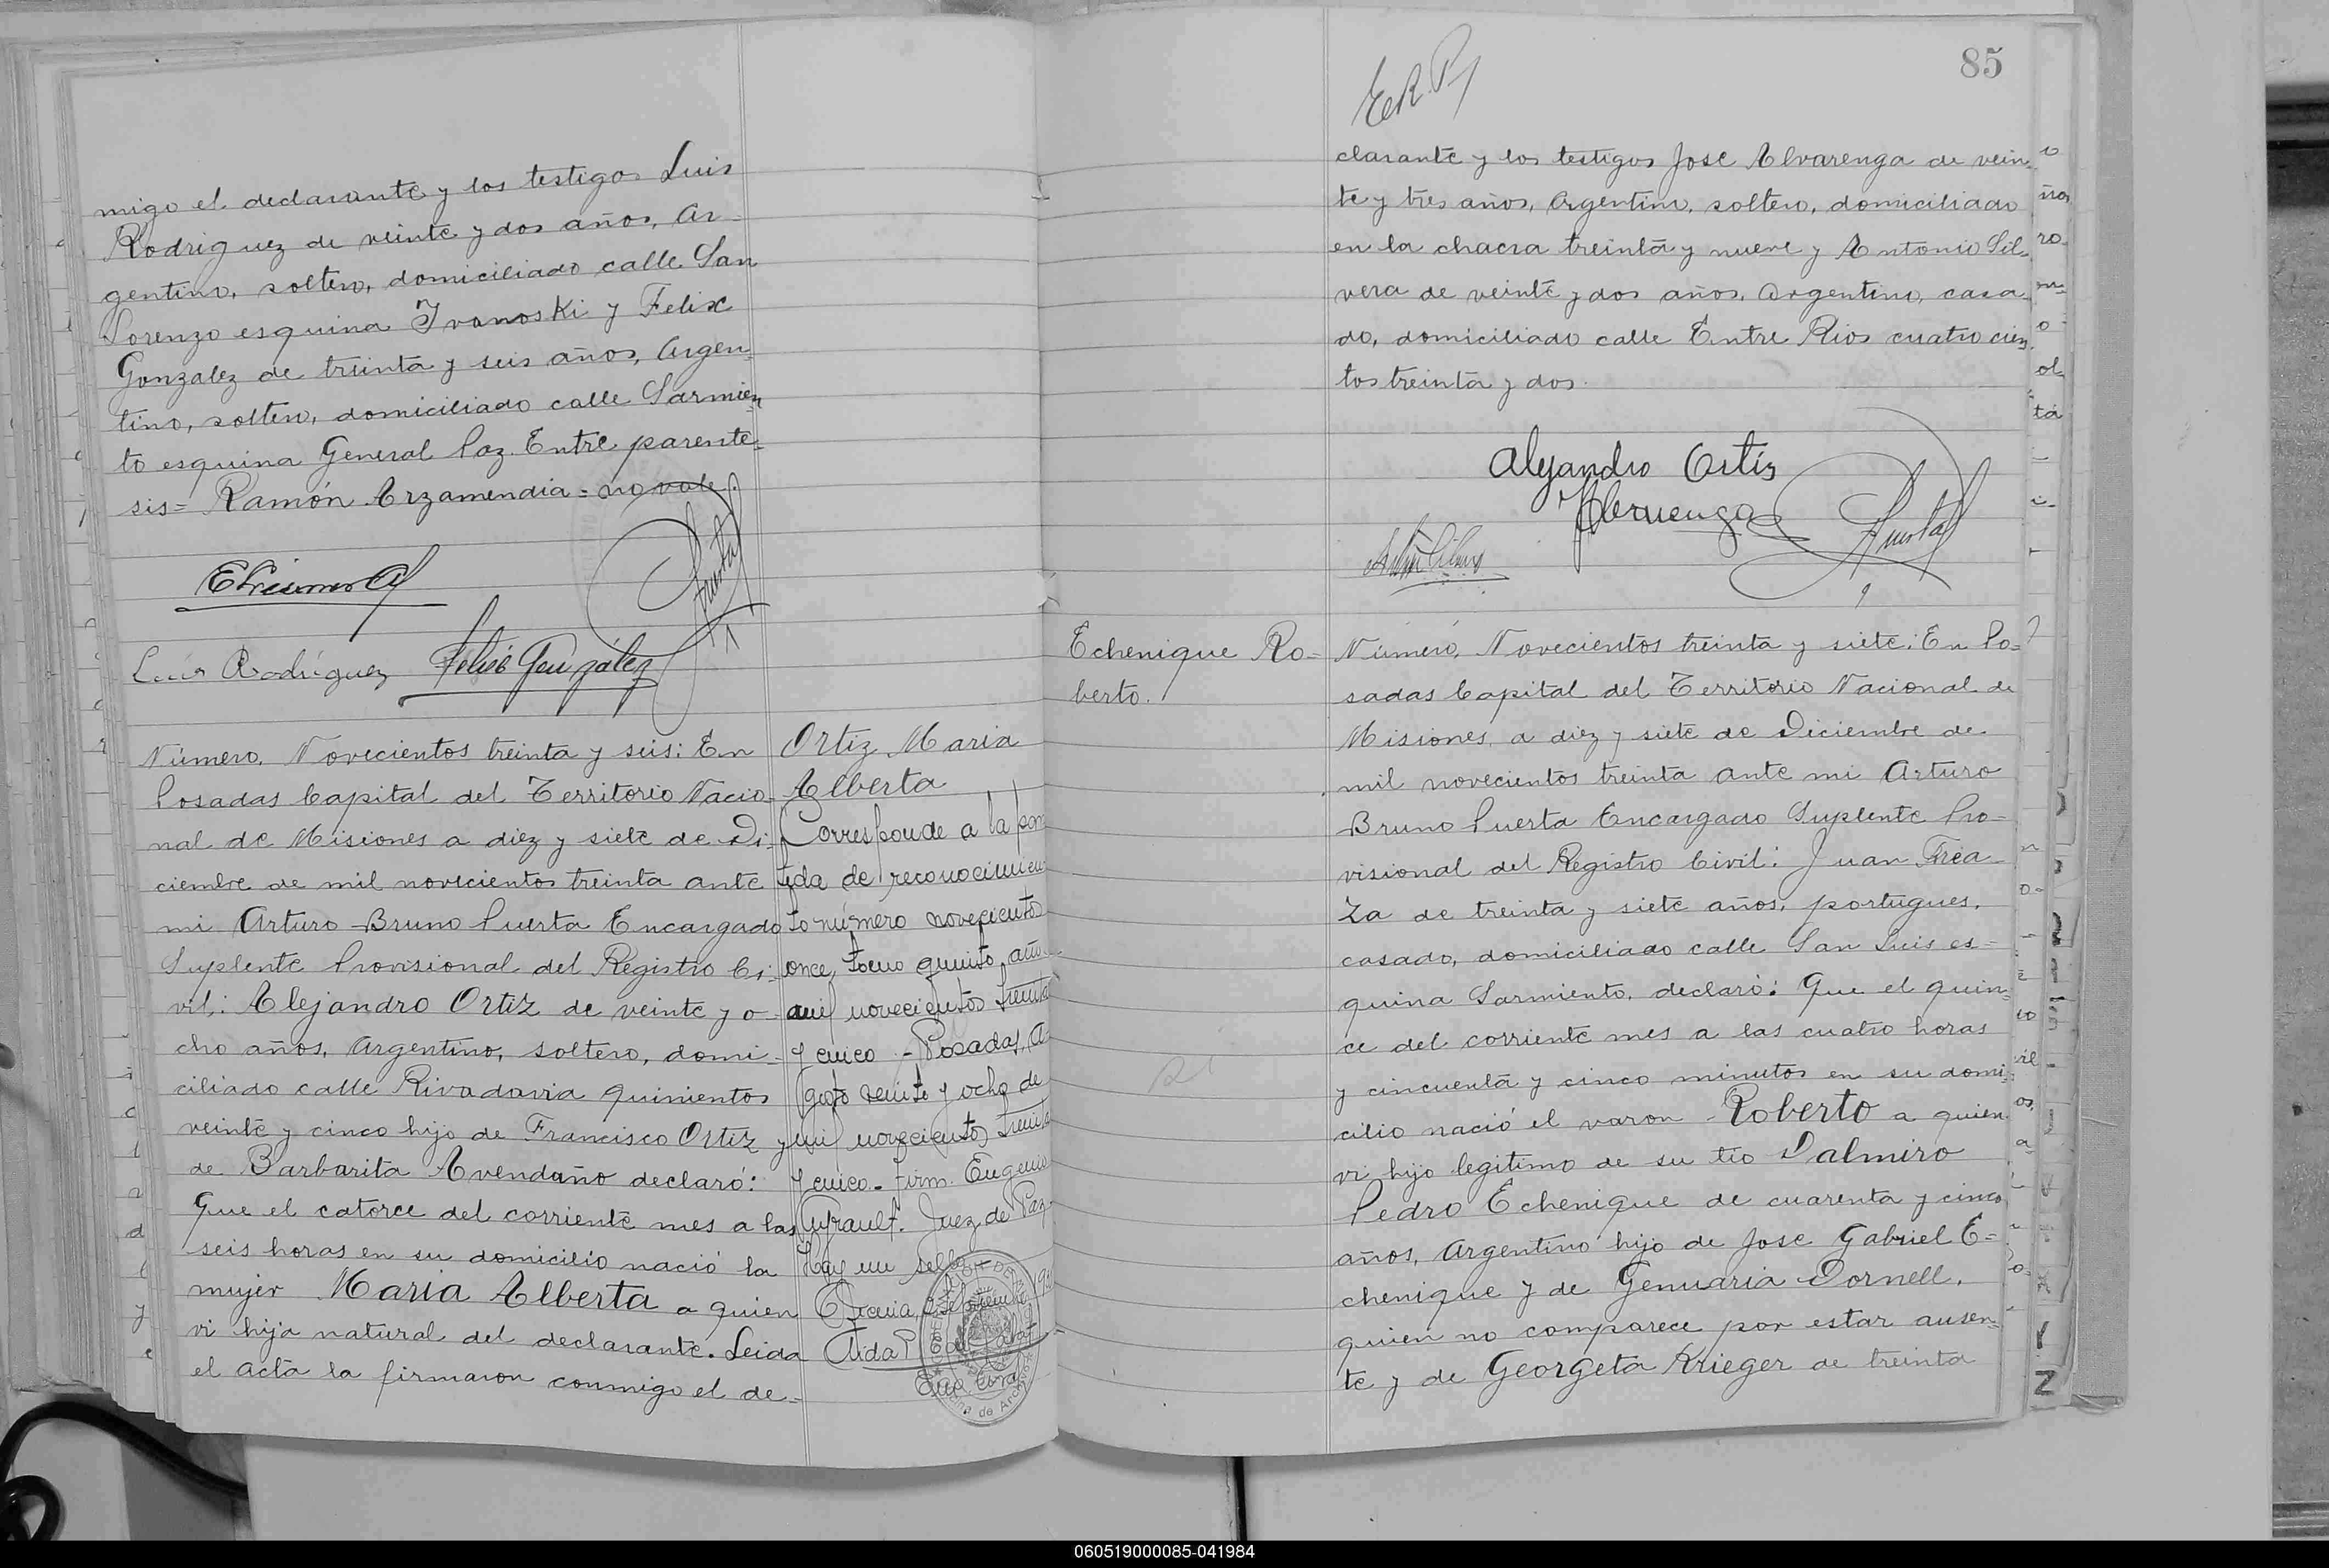 migo el declarante y los testigos Luis
Rodriguez de veinte y dos años, Ar-
gentino, soltero, domiciliado calle San
Lorenzo esquina Ivanoski y Felix
Gonzalez de treinta y seis años, Argen-
tino, soltero, domiciliado calle Sarmien-
to esquina General Paz. Entre parente-
sis= Ramón Arzamendia = no vale.
Puerta
Luis Rodriguez Felix Gonzalez
Número, Novecientos treinta y seis: En
Posadas Capital del Territorio Nacio-
nal de Misiones a diez y siete de Di-
ciembre de mil novecientos treinta ante
mi Arturo Bruno Puerta Encargado
Suplente Provisional del Registro Ci-
vil: Alejandro Ortiz de veinte y o-
cho años, Argentino, soltero, domi-
ciliado calle Rivadavia quinientos
veinte y cinco hijo de Francisco Ortiz y
de Barbarita Avendaño declaró:
Que el catorce del corriente mes a las
seis horas en su domicilio nació la
mujer Maria Alberta a quien
vi hija natural del declarante. Leida
el acta la firmaron conmigo el de-
Ortiz Maria
Alberta
Corresponde a la par
tida de reconocimien
to número novecientos
once, tomo quinto, año
mil novecientos treinta
y cinco - Posadas, A
gosto veinte y ocho de
mil novecientos treinta
y cinco - Firm. Eugenio
Juez de Paz
Hay un sello
Aida
85
E.R.P.
clarante y los testigos Jose Alvarenga de vein-
te y tres años, Argentino, soltero, domiciliado
en la chacra treinta y nueve y Antonio Sil-
vera de veinte y dos años, Argentino, casa-
do, domiciliado calle Entre Rios cuatro cien-
tos treinta y dos.
Alejandro Ortiz
JAlvarenga Puerta
Echenique Ro-
berto.
Número, Novecientos treinta y siete: En Po-
sadas Capital del Territorio Nacional de
Misiones, a diez y siete de Diciembre de
mil novecientos treinta ante mi Arturo
Bruno Puerta Encargado Suplente Pro-
visional del Registro Civil: Juan Frea-
za de treinta y siete años, portugues,
casado, domiciliado calle San Luis es-
quina Sarmiento, declaró: Que el quin-
ce del corriente mes a las cuatro horas
y cincuenta y cinco minutos en su domi-
cilio nació el varon Roberto a quien
vi hijo legitimo de su tio Dalmiro
Pedro Echenique de cuarenta y cinco
años, Argentino hijo de Jose Gabriel E-
chenique y de Genuaria Dornell,
quien no comparece por estar ausen-
te y de Georgeta Krieger de treinta
060519000085-041984